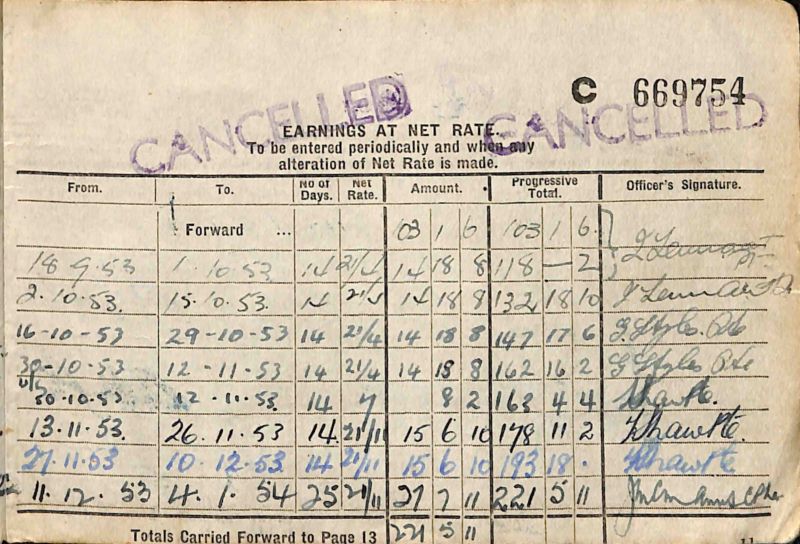 C 669754
CANCELLED CANCELLED
EARNINGS AT NET RATE.
To be entered periodically and when any
alteration of Net Rate is made.
From. To. No of Days. Net Rate. Amount. Progressive Total. Officer's Signature.
Forward ... 103 1 6 103 1 6
18 9.53 1.10.53 14 21/4 14 18 8 118 — 2
2.10.53 15.10.53. 14 21/4 14 18 8 132 18 10
16-10-53 29-10-53 14 21/4 14 18 8 147 17 6
30-10-53 12-11-53 14 21/4 14 18 8 162 16 2
30.10.53 12.11.53. 14 7 8 2 163 4 4
13.11.53. 26.11.53 14. 21/11 15 6 10 178 11 2
27.11.53 10.12.53 14 21/11 15 6 10 193 18 .
11.12.53 4.1.54 25 21/11 27 7 11 221 5 11
Totals Carried Forward to Page 13 221 5 11
11